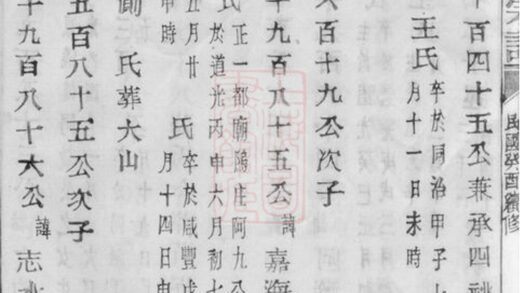 民國癸酉續修
百四十五公兼承四祧
王氏 卒於同治甲子
月十一日未時
百十九公次子
十九百八十五公 諱 嘉海
氏 正一都廟鴻庄阿九公
於道光丙申六月初七
氏 卒於咸豐戊
五月廿
月十四日申
申時
氏葬大山
五百八十五公次子
十九百八十六公 諱 志